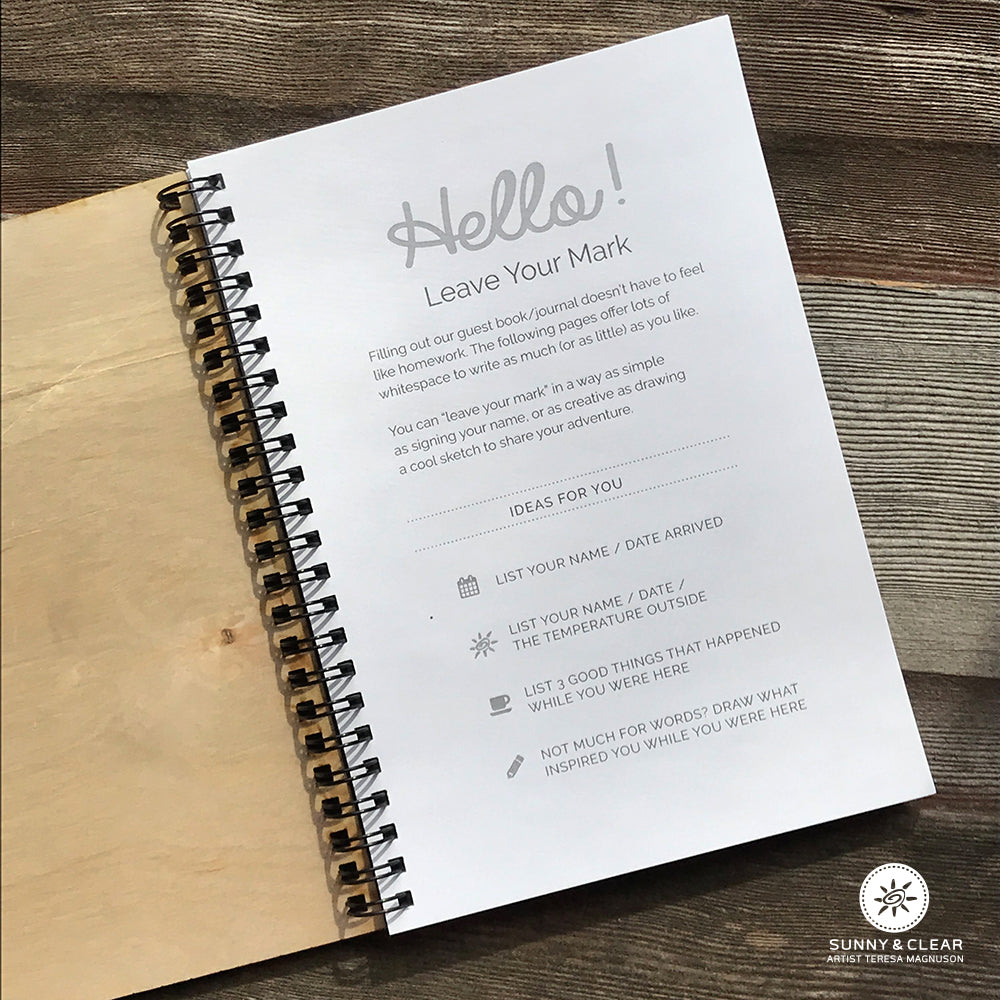 Hello!
Leave Your Mark
Filling out our guest book/journal doesn't have to feel
like homework. The following pages offer lots of
whitespace to write as much (or as little) as you like.
You can "leave your mark" in a way as simple
as signing your name, or as creative as drawing
a cool sketch to share your adventure.
IDEAS FOR YOU
LIST YOUR NAME / DATE ARRIVED
LIST YOUR NAME / DATE /
THE TEMPERATURE OUTSIDE
LIST 3 GOOD THINGS THAT HAPPENED
WHILE YOU WERE HERE
NOT MUCH FOR WORDS? DRAW WHAT
INSPIRED YOU WHILE YOU WERE HERE
SUNNY & CLEAR
ARTIST TERESA MAGNUSON